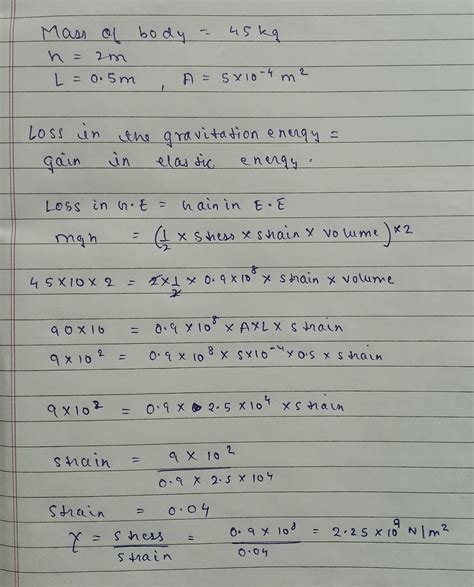 Mass of body = 45 kg
h = 2m
L = 0.5m , A = 5×10⁻⁴ m²
Loss in the gravitation energy =
gain in elastic energy.
Loss in G.E = Gain in E.E
mgh = (1/2 × stress × strain × volume) ×2
45×10×2 = 2×1/2 × 0.9×10⁸ × strain × volume
90×10 = 0.9×10⁸ × A×L × strain
9×10² = 0.9×10⁸ × 5×10⁻⁴×0.5 × strain
9×10² = 0.9 × 2.5×10⁴ × strain
strain = 9×10² / 0.9 × 2.5 × 104
strain = 0.04
Y = stress/strain = 0.9×10⁸/0.04 = 2.25×10⁹ N/m²